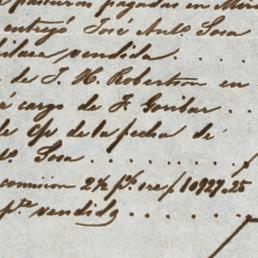 pasturas pagadas en
entregó José Anto Sosa
vendida . . . .
de J. H. Robertson en
á cargo de F. Goribar . .
de c/c de la fecha de
Sosa . . . . . . . .
comision 2½ p% sre $ 10927.25
vendido . . . . . .